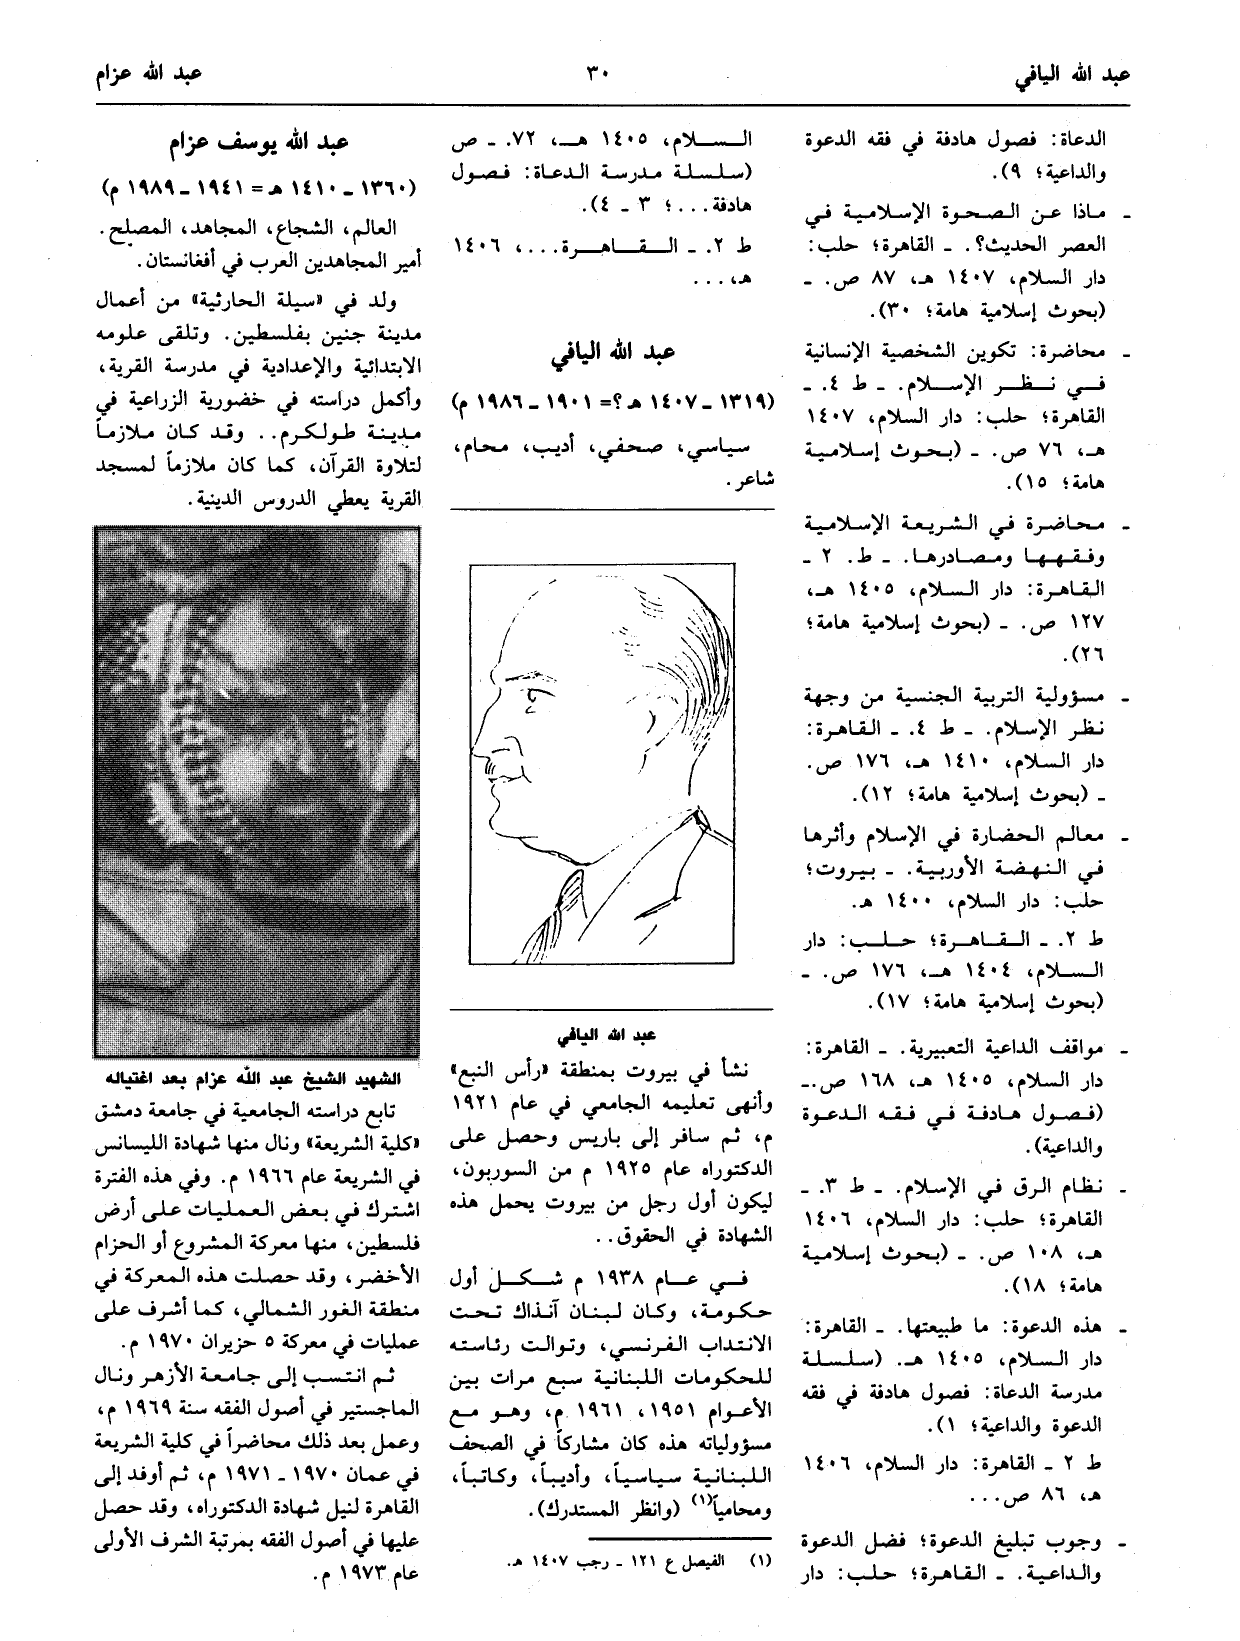 عبد الله اليافي
٣٠
عبد الله عزام
الدعاة: فصول هادفة في فقه الدعوة
والداعية؛ ٩).
- ماذا عن الصحوة الإسلامية في
العصر الحديث؟. - القاهرة؛ حلب:
دار السلام، ١٤٠٧ هـ، ٨٧ ص. -
(بحوث إسلامية هامة؛ ٣٠).
- محاضرة: تكوين الشخصية الإنسانية
في نظر الإسلام. - ط ٤. -
القاهرة؛ حلب: دار السلام، ١٤٠٧
هـ، ٧٦ ص. - (بحوث إسلامية
هامة؛ ١٥).
- محاضرة في الشريعة الإسلامية
وفقهها ومصادرها. - ط. ٢ -
القاهرة: دار السلام، ١٤٠٥ هـ،
١٢٧ ص. - (بحوث إسلامية هامة؛
٢٦).
- مسؤولية التربية الجنسية من وجهة
نظر الإسلام. - ط ٤. - القاهرة:
دار السلام، ١٤١٠ هـ، ١٧٦ ص.
- (بحوث إسلامية هامة؛ ١٢).
- معالم الحضارة في الإسلام وأثرها
في النهضة الأوربية. - بيروت؛
حلب: دار السلام، ١٤٠٠ هـ.
ط ٢. - القاهرة؛ حلب: دار
السلام، ١٤٠٤ هـ، ١٧٦ ص. -
(بحوث إسلامية هامة؛ ١٧).
- مواقف الداعية التعبيرية. - القاهرة:
دار السلام، ١٤٠٥ هـ، ١٦٨ ص.-
(فصول هادفة في فقه الدعوة
والداعية).
- نظام الرق في الإسلام. - ط ٣. -
القاهرة؛ حلب: دار السلام، ١٤٠٦
هـ، ١٠٨ ص. - (بحوث إسلامية
هامة؛ ١٨).
- هذه الدعوة: ما طبيعتها. - القاهرة:
دار السلام، ١٤٠٥ هـ. (سلسلة
مدرسة الدعاة: فصول هادفة في فقه
الدعوة والداعية؛ ١).
ط ٢ - القاهرة: دار السلام، ١٤٠٦
هـ، ٨٦ ص...
- وجوب تبليغ الدعوة؛ فضل الدعوة
والداعية. - القاهرة؛ حلب: دار
السلام، ١٤٠٥ هـ، ٧٢. - ص
(سلسلة مدرسة الدعاة: فصول
هادفة...؛ ٣ - ٤).
ط ٢. - القاهرة...، ١٤٠٦
هـ، ...
عبد الله اليافي
(١٣١٩ - ١٤٠٧ هـ؟= ١٩٠١ - ١٩٨٦ م)
سياسي، صحفي، أديب، محام،
شاعر.
عبد الله اليافي
نشأ في بيروت بمنطقة «رأس النبع»
وأنهى تعليمه الجامعي في عام ١٩٢١
م، ثم سافر إلى باريس وحصل على
الدكتوراه عام ١٩٢٥ م من السوربون،
ليكون أول رجل من بيروت يحمل هذه
الشهادة في الحقوق..
في عام ١٩٣٨ م شكل أول
حكومة، وكان لبنان آنذاك تحت
الانتداب الفرنسي، وتوالت رئاسته
للحكومات اللبنانية سبع مرات بين
الأعوام ١٩٥١، ١٩٦١ م، وهو مع
مسؤولياته هذه كان مشاركاً في الصحف
اللبنانية سياسياً، وأديباً، وكاتباً،
ومحامياً(١) (وانظر المستدرك).
(١) الفيصل ع ١٢١ - رجب ١٤٠٧ هـ.
عبد الله يوسف عزام
(١٣٦٠ - ١٤١٠ هـ = ١٩٤١ - ١٩٨٩ م)
العالم، الشجاع، المجاهد، المصلح.
أمير المجاهدين العرب في أفغانستان.
ولد في «سيلة الحارثية» من أعمال
مدينة جنين بفلسطين. وتلقى علومه
الابتدائية والإعدادية في مدرسة القرية،
وأكمل دراسته في خضورية الزراعية في
مدينة طولكرم.. وقد كان ملازماً
لتلاوة القرآن، كما كان ملازماً لمسجد
القرية يعطي الدروس الدينية.
الشهيد الشيخ عبد الله عزام بعد اغتياله
تابع دراسته الجامعية في جامعة دمشق
«كلية الشريعة» ونال منها شهادة الليسانس
في الشريعة عام ١٩٦٦ م. وفي هذه الفترة
اشترك في بعض العمليات على أرض
فلسطين، منها معركة المشروع أو الحزام
الأخضر، وقد حصلت هذه المعركة في
منطقة الغور الشمالي، كما أشرف على
عمليات في معركة ٥ حزيران ١٩٧٠ م.
ثم انتسب إلى جامعة الأزهر ونال
الماجستير في أصول الفقه سنة ١٩٦٩ م،
وعمل بعد ذلك محاضراً في كلية الشريعة
في عمان ١٩٧٠ - ١٩٧١ م، ثم أوفد إلى
القاهرة لنيل شهادة الدكتوراه، وقد حصل
عليها في أصول الفقه بمرتبة الشرف الأولى
عام ١٩٧٣ م.